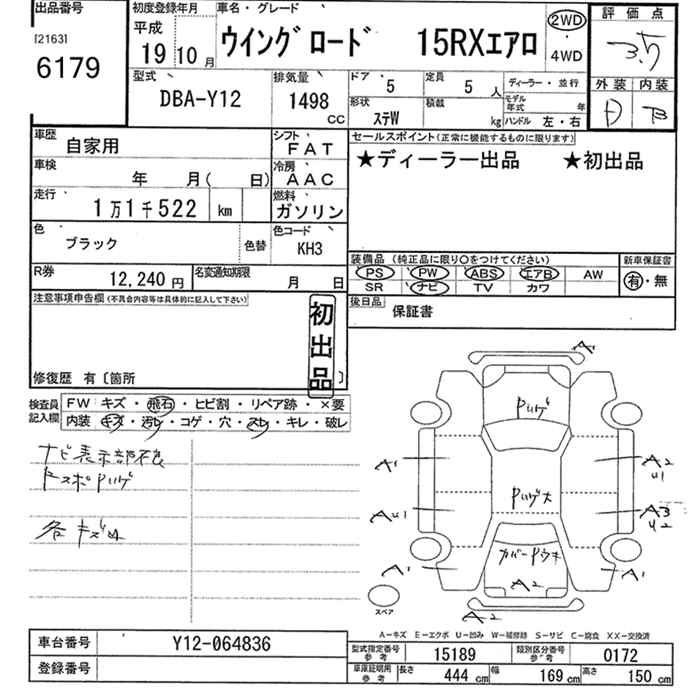 出品番号 初度登録年月 車名・グレード 評価点
[2163] 平成 2WD
6179 19 10月 ウイングロード 15RXエアロ ・ 3.5
4WD
型式 排気量 ドア 5 定員 5人 ディーラー・並行 外装 内装
DBA-Y12 1498 cc 形状 ステW 積載 kg モデル年式 年 D B
ハンドル 左・右
車歴 自家用 シフト FAT セールスポイント(正常に機能するものに限ります)
車検 年 月( 日) 冷房 AAC ★ディーラー出品 ★初出品
走行 1万1千522 km 燃料 ガソリン
色 ブラック 色替 色コード KH3
装備品 (純正品に限り○をつけてください) 新車保証書
R券 12,240円 名変通知期限 月 日 PS PW ABS エアB AW 有・無
SR ナビ TV カワ
注意事項申告欄(不具合内容等は具体的に記入して下さい) 後日品 保証書
初出品
修復歴 有〔箇所 〕
検査員記入欄 FW キズ・飛石・ヒビ割・リペア跡・×要
内装 キズ・汚れ・コゲ・穴・スレ・キレ・破レ
ナビ表示部不良
ドスポPハゲ
各キズ
A
Pハゲ
A1 A2
U1
Pハゲ大
AU1 A3
U2
カバー
A1 A2 A1
スペア A2
A－キズ E－エクボ U－凹み W－補修跡 S－サビ C－腐食 XX－交換済
車台番号 Y12-064836 型式指定番号 参考 15189 類別区分番号 参考 0172
登録番号 車庫証明用 参考 長さ 444 cm 幅 169 cm 高さ 150 cm